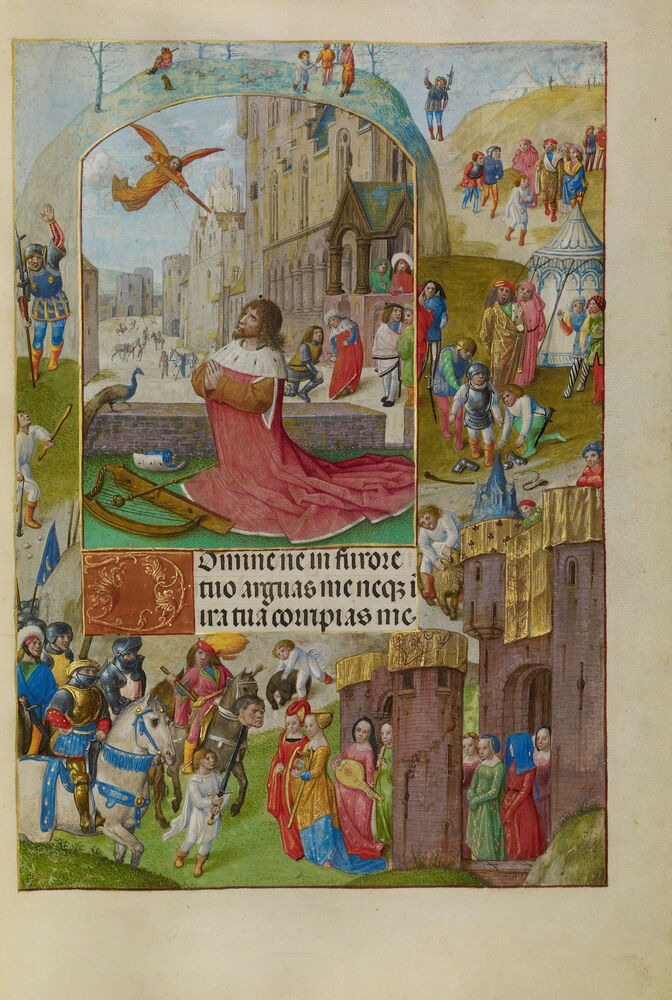 DOmine ne in furore
tuo arguas me neqꝫ ī
ira tuā corripias me.